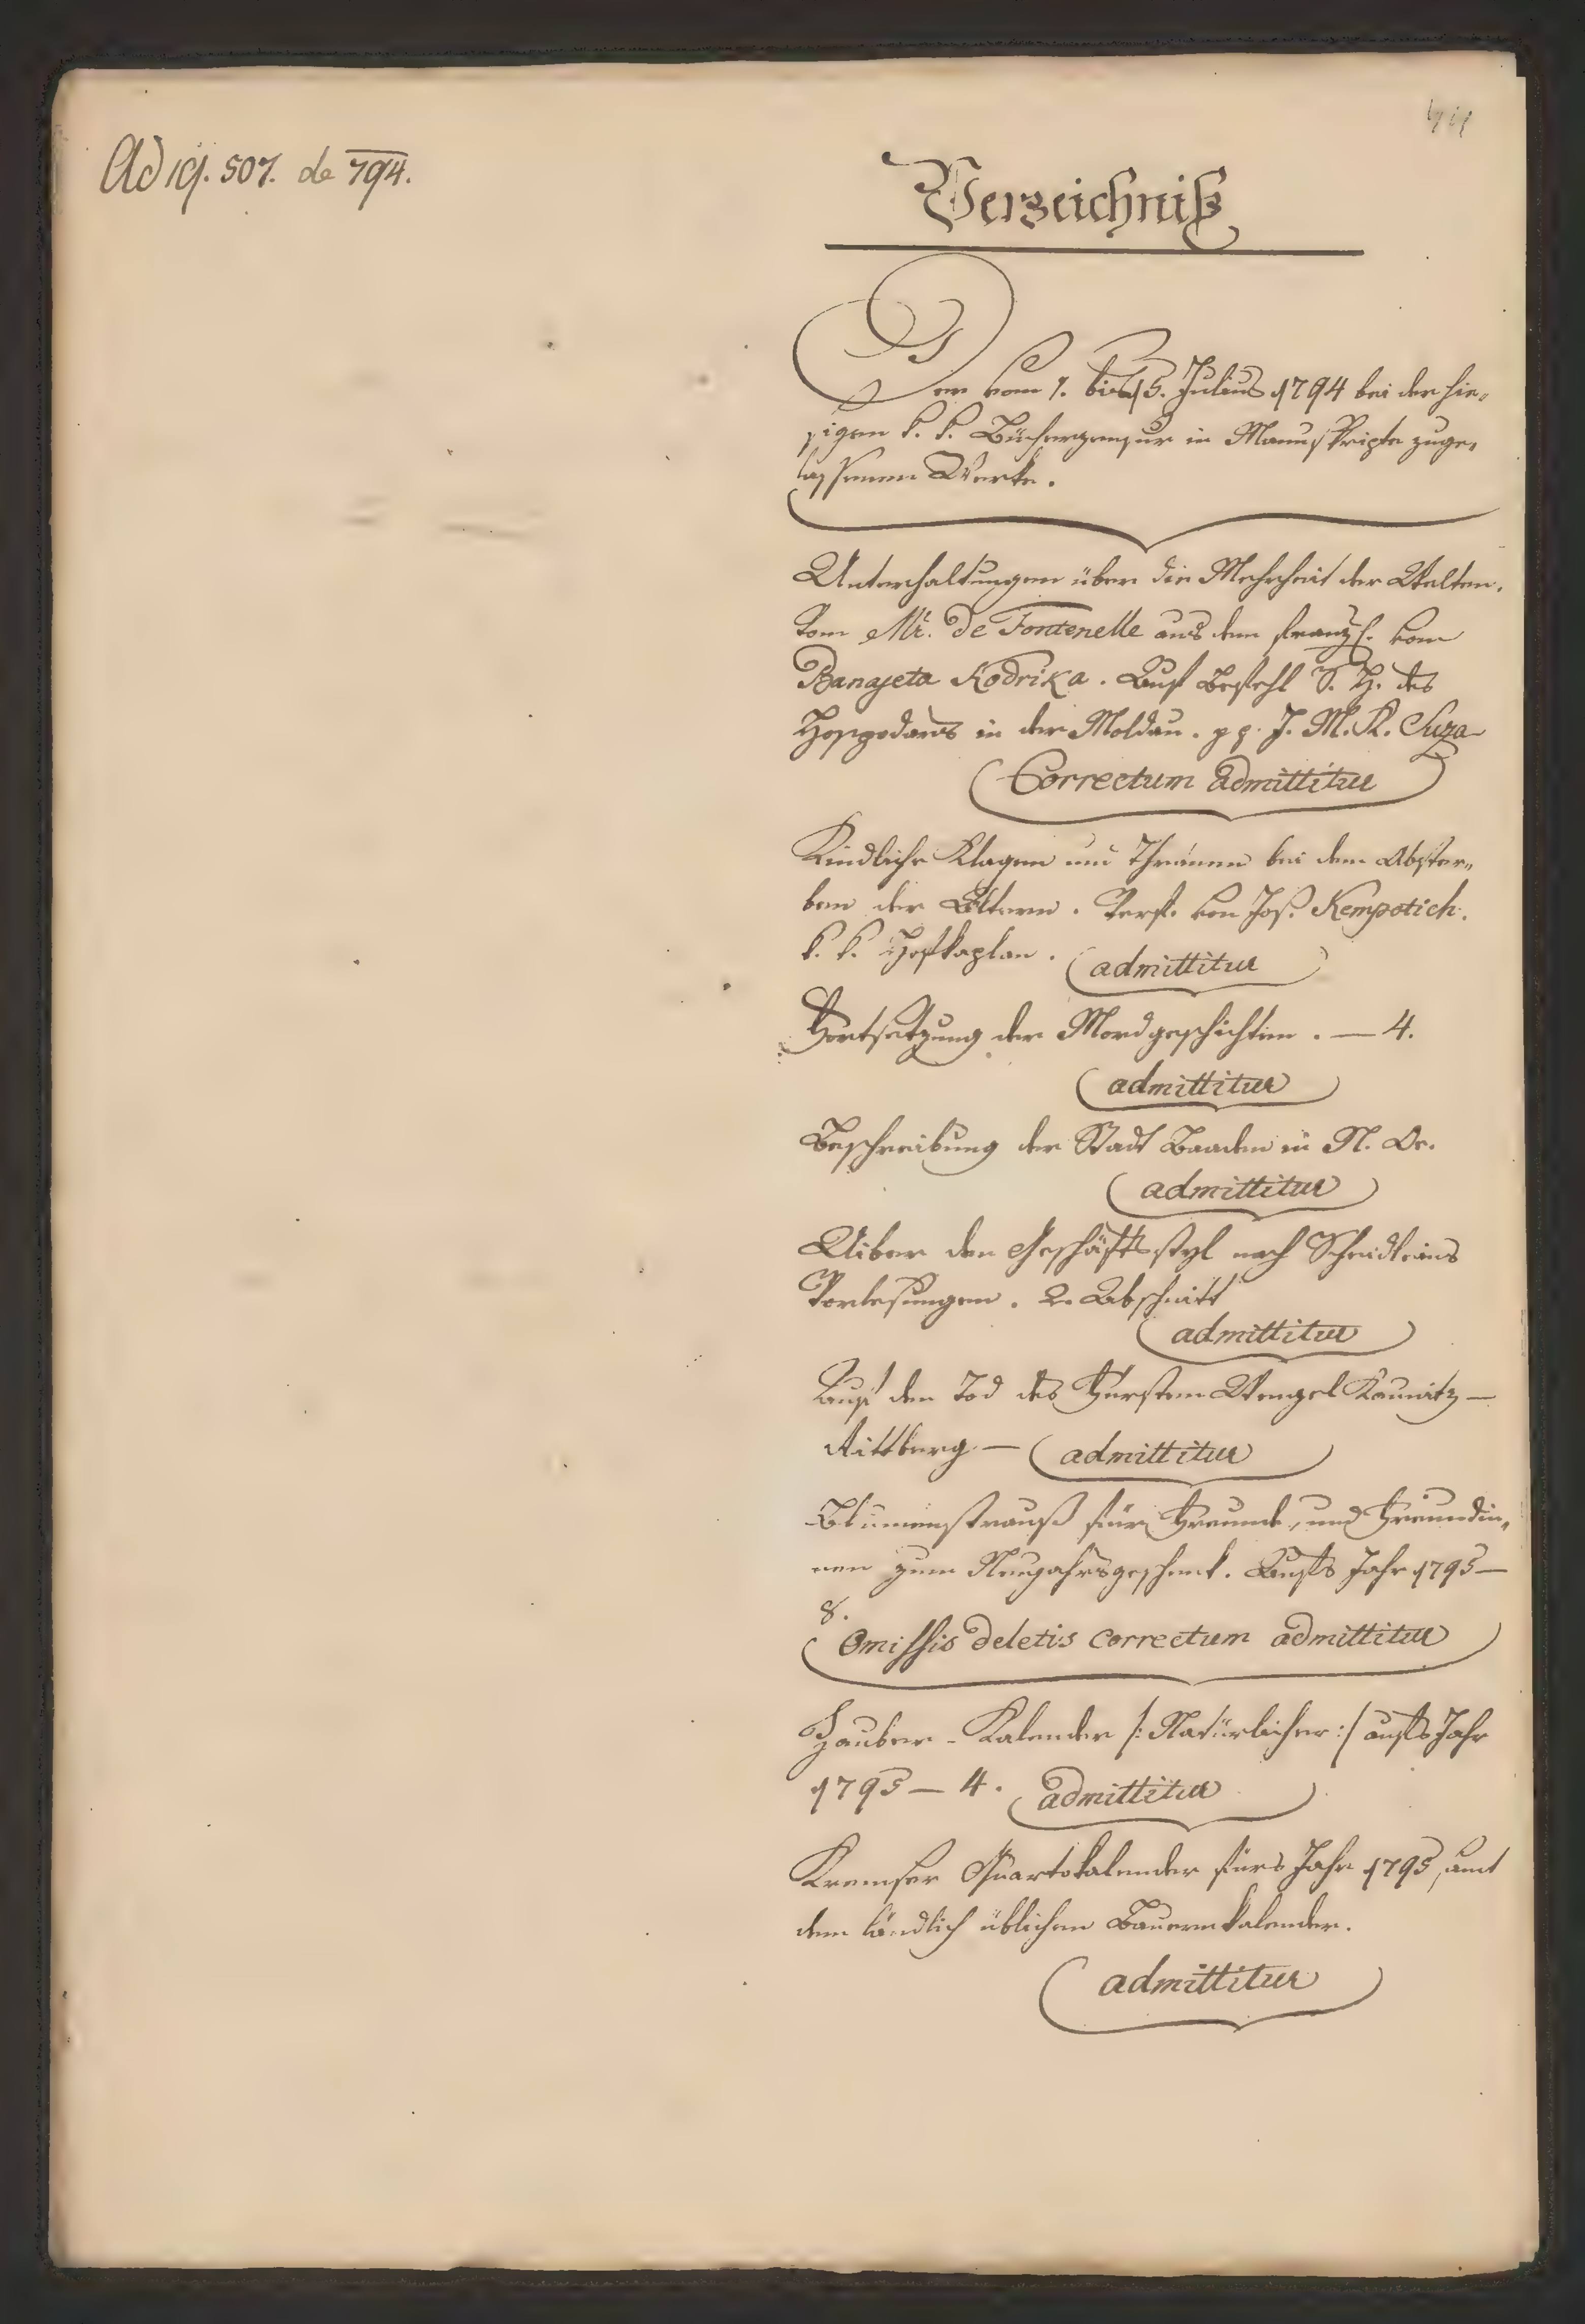 Ad 19. 507. de 794.
Verzeichniß
Der vom 1. bis 15. Julius 1794 bei der hie„
sigen k. k. Bücherzensur in Manuskripte zuge„
lassenen Werke.
Unterhaltungen über die Mehrheit der Welten.
Vom Mr. De Fontenelle aus dem franzs. vom
Banajeta Kodrika. Auf Befehl S. H. des
Hospodars in der Moldau. pp. J. M. K. Suza
Correctum admittitur
Kindliche Klagen und Thränen bei dem Abster„
ben der Eltern. Verf. von Jos. Kempotich.
k. k. Hofkaplan. admittitur
Fortsetzung der Mordgeschichten. — 4.
admittitur
Beschreibung der Stadt Baaden in N. Oe.
admittitur
Uiber den Geschäftsstyl nach Scheidleins
Vorlesungen. 2. Abschnitt
admittitur
Auf den Tod des Fürsten Wenzel Kaunitz —
Rittberg — admittitur
Blumenstrauß für Freunde, und Freundin„
nen zum Neujahrsgeschenk. Aufs Jahr 1795 —
8.
Omissis deletis correctum admittitur
Zauber-Kalender /: Natürlicher :/ aufs Jahr
1795 — 4. admittitur
Kremser Quartokalender fürs Jahr 1795, samt
dem ländlich üblichen Bauernkalender.
admittitur